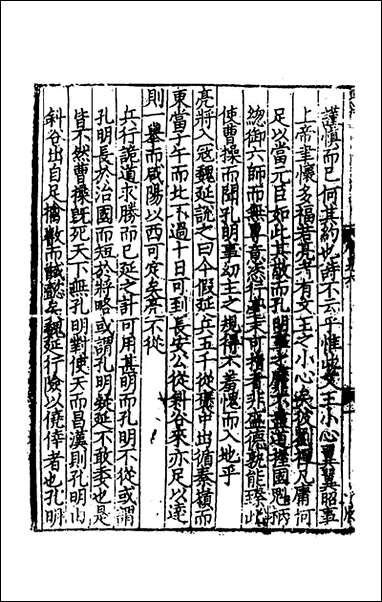 謹慎而已何其約也詩不云乎惟此文王小心翼翼昭事
上帝聿懷多福若亮者有文王之小心矣彼劉禪凡庸何
足以當元臣如此其敬而孔明事之靡不盡道挃國柄
總御六師而無專恣行學未可指者非盛德孰能臻此
使曹操而聞孔明事幼主之規得不羞愧而入地乎
亮將入寇魏延說之曰今假延兵五千從褒中出循秦嶺而
東當子午而北不過十日可到長安公從斜谷來亦足以達
則一舉而咸陽以西可定矣亮不從
兵行詭道求勝而已延之計可用甚明而孔明不從或謂
孔明長於治國而短於將略或謂孔明疑延不敢委也是
皆不然曹操旣死天下無孔明對使天而昌漢則孔明由
斜谷出自足擒叡而馘懿矣魏延行險以僥倖者也孔明